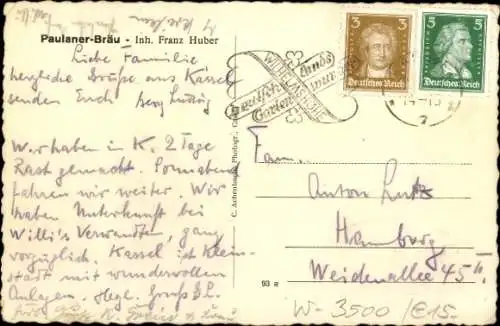 Paulaner-Bräu - Inh. Franz Huber
Liebe Familie
herzliche Grüße aus Kassel
senden Euch
Wir haben in K. 2 Tage
Rast gemacht. Sonnabend
fahren wir weiter. Wir
haben Unterkunft bei
Willi's Verwandten, ganz
vorzüglich. Kassel ist Klein-
stadt mit wundervollen
Anlagen. Herzl. Gruß
3
Deutsches Reich
5
Deutsches Reich
WILHELMSHÖHE
Deutschlands
Garten
93 R
Fam.
Anton Lutz
Hamburg
Weidenallee 45 II.
W-3500 /€15.-